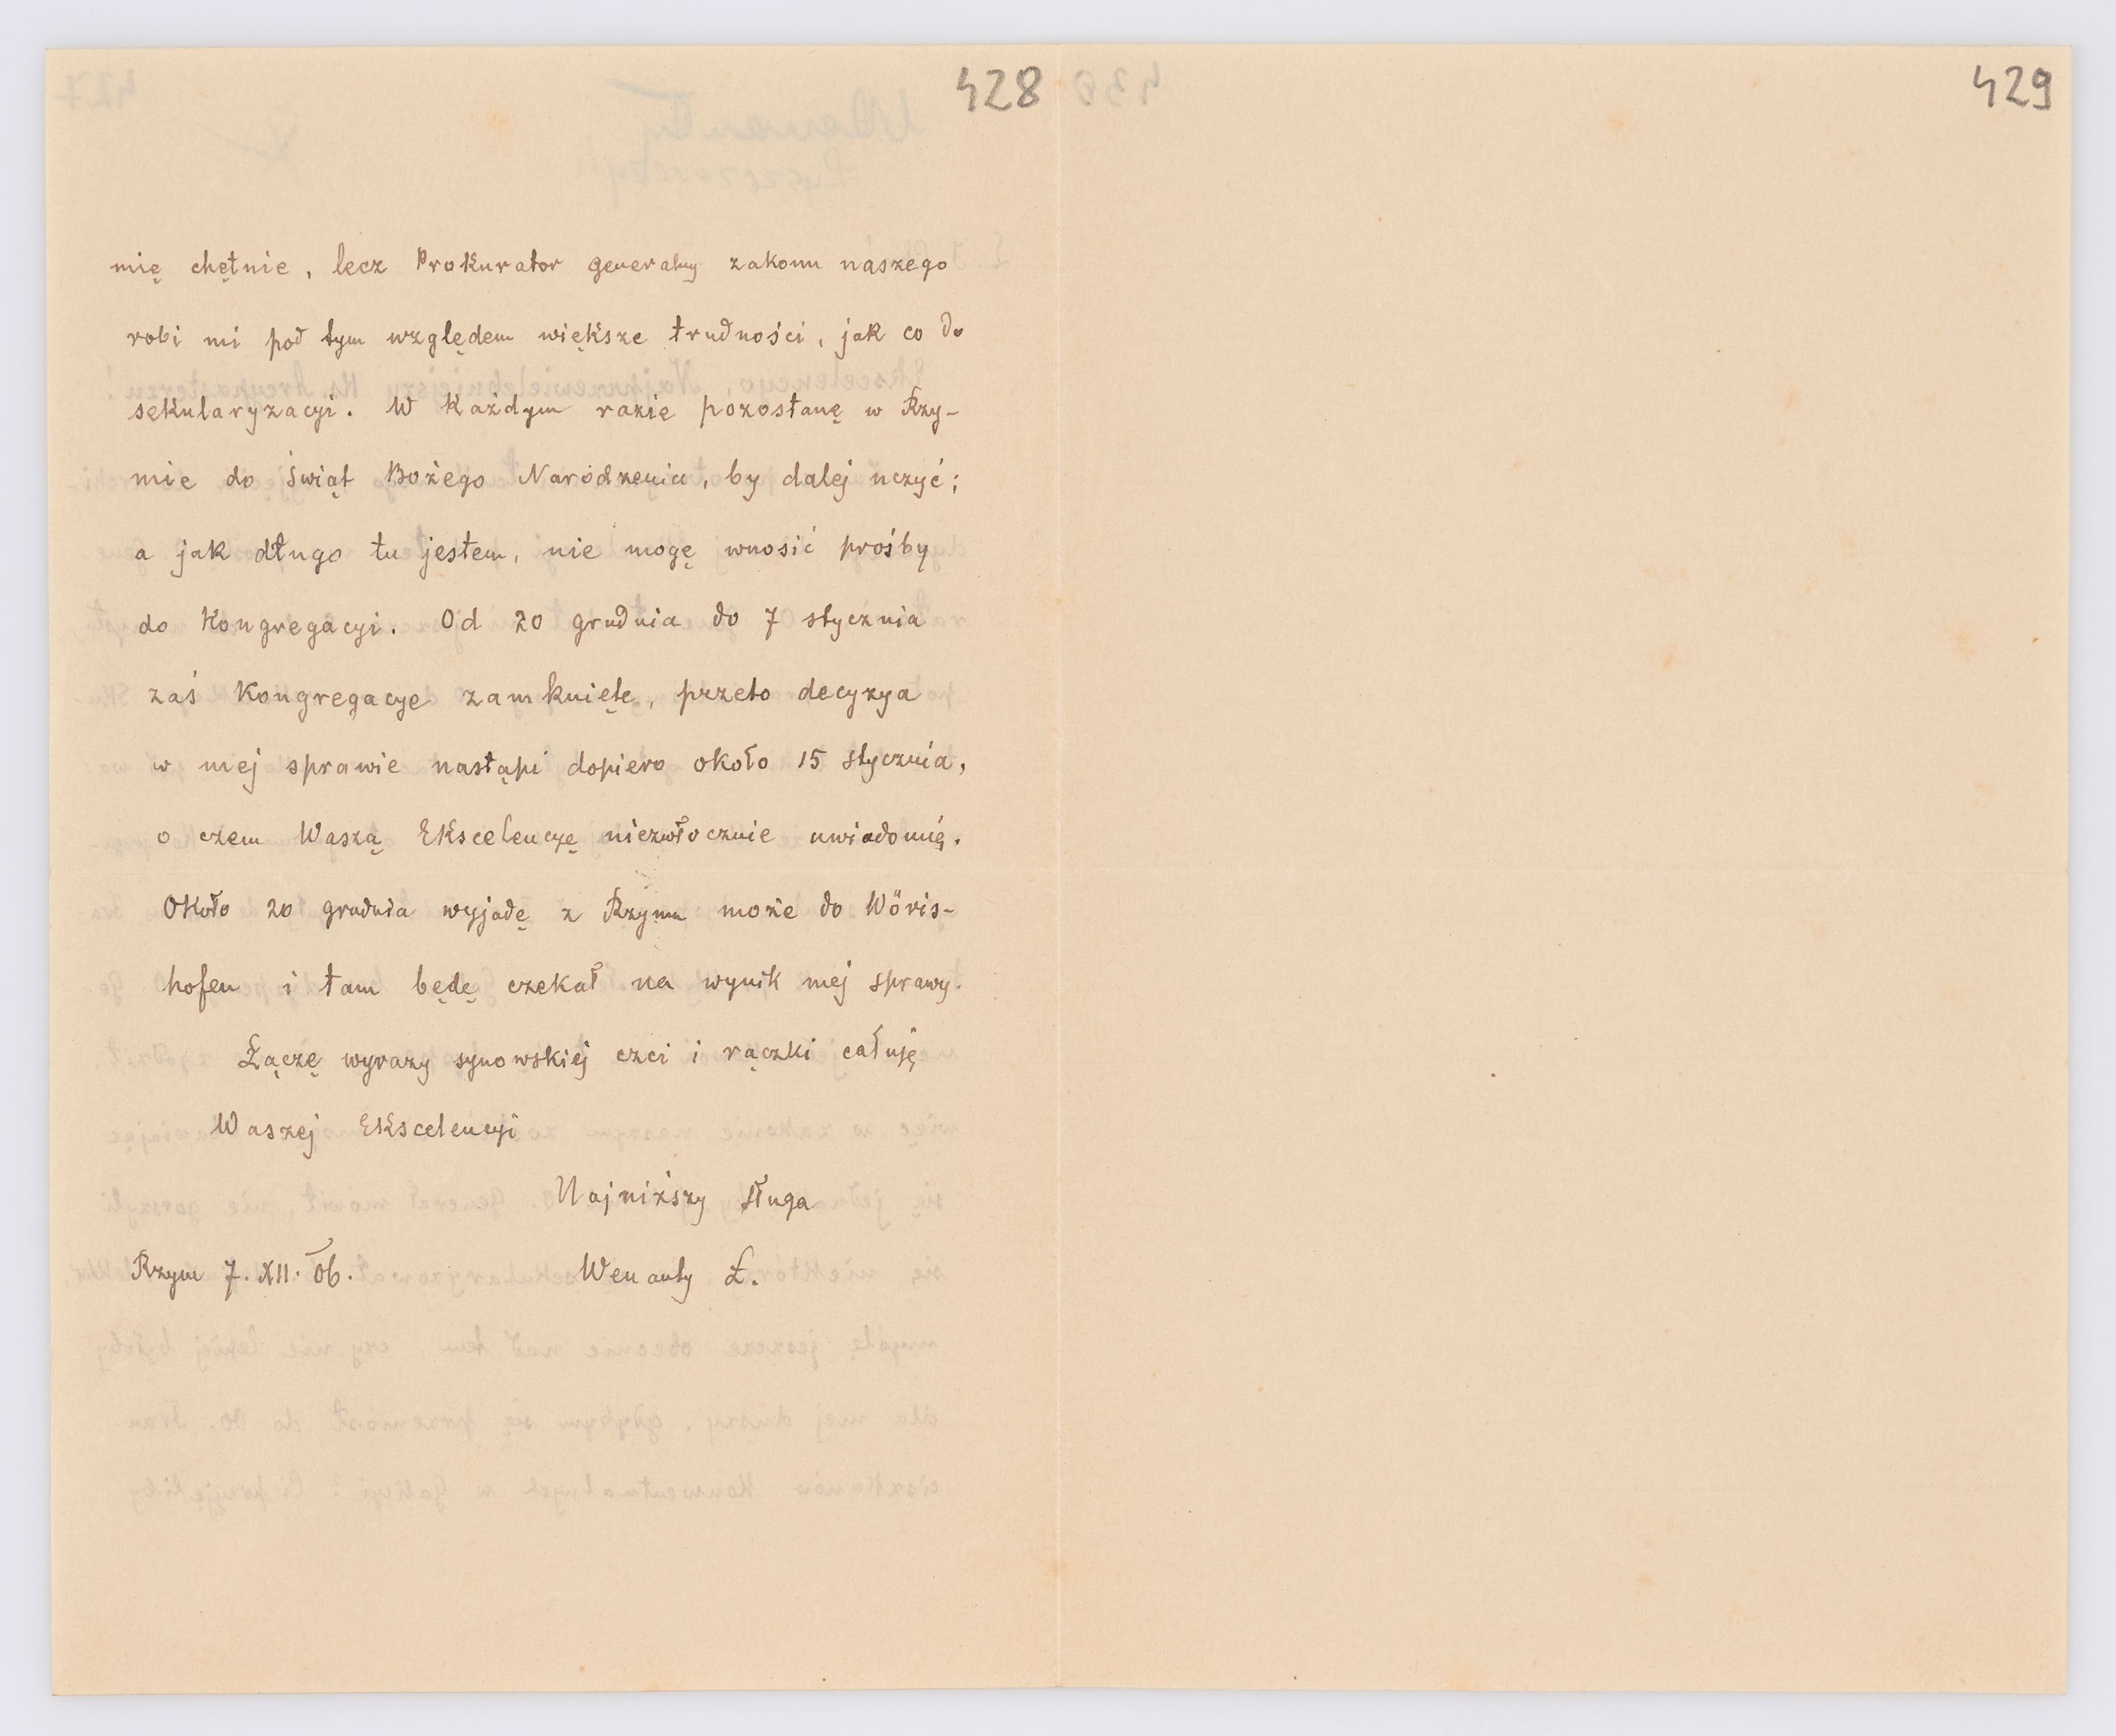 428
429
mię chętnie, lecz Prokurator generalny zakonu naszego
robi mi pod tym względem większe trudności, jak co do
sekularyzacyi. W każdym razie pozostanę w Rzy-
mie do świąt Bożego Narodzenia, by dalej uczyć;
a jak długo tu jestem, nie mogę wnosić prośby
do Kongregacyi. Od 20 grudnia do 7 stycznia
zaś Kongregacye zamknięte, przeto decyzya
w mej sprawie nastąpi dopiero około 15 stycznia,
o czem Waszą Ekscelencyę niezwłocznie uwiadomię.
Około 20 grudnia wyjadę z Rzymu może do Wöris-
hofen i tam będę czekał na wynik mej sprawy.
Łączę wyrazy synowskiej czci i rączki całuję
Waszej Ekscelencyi
Najniższy sługa
Rzym 7. XII. 06. Wenanty Ł.